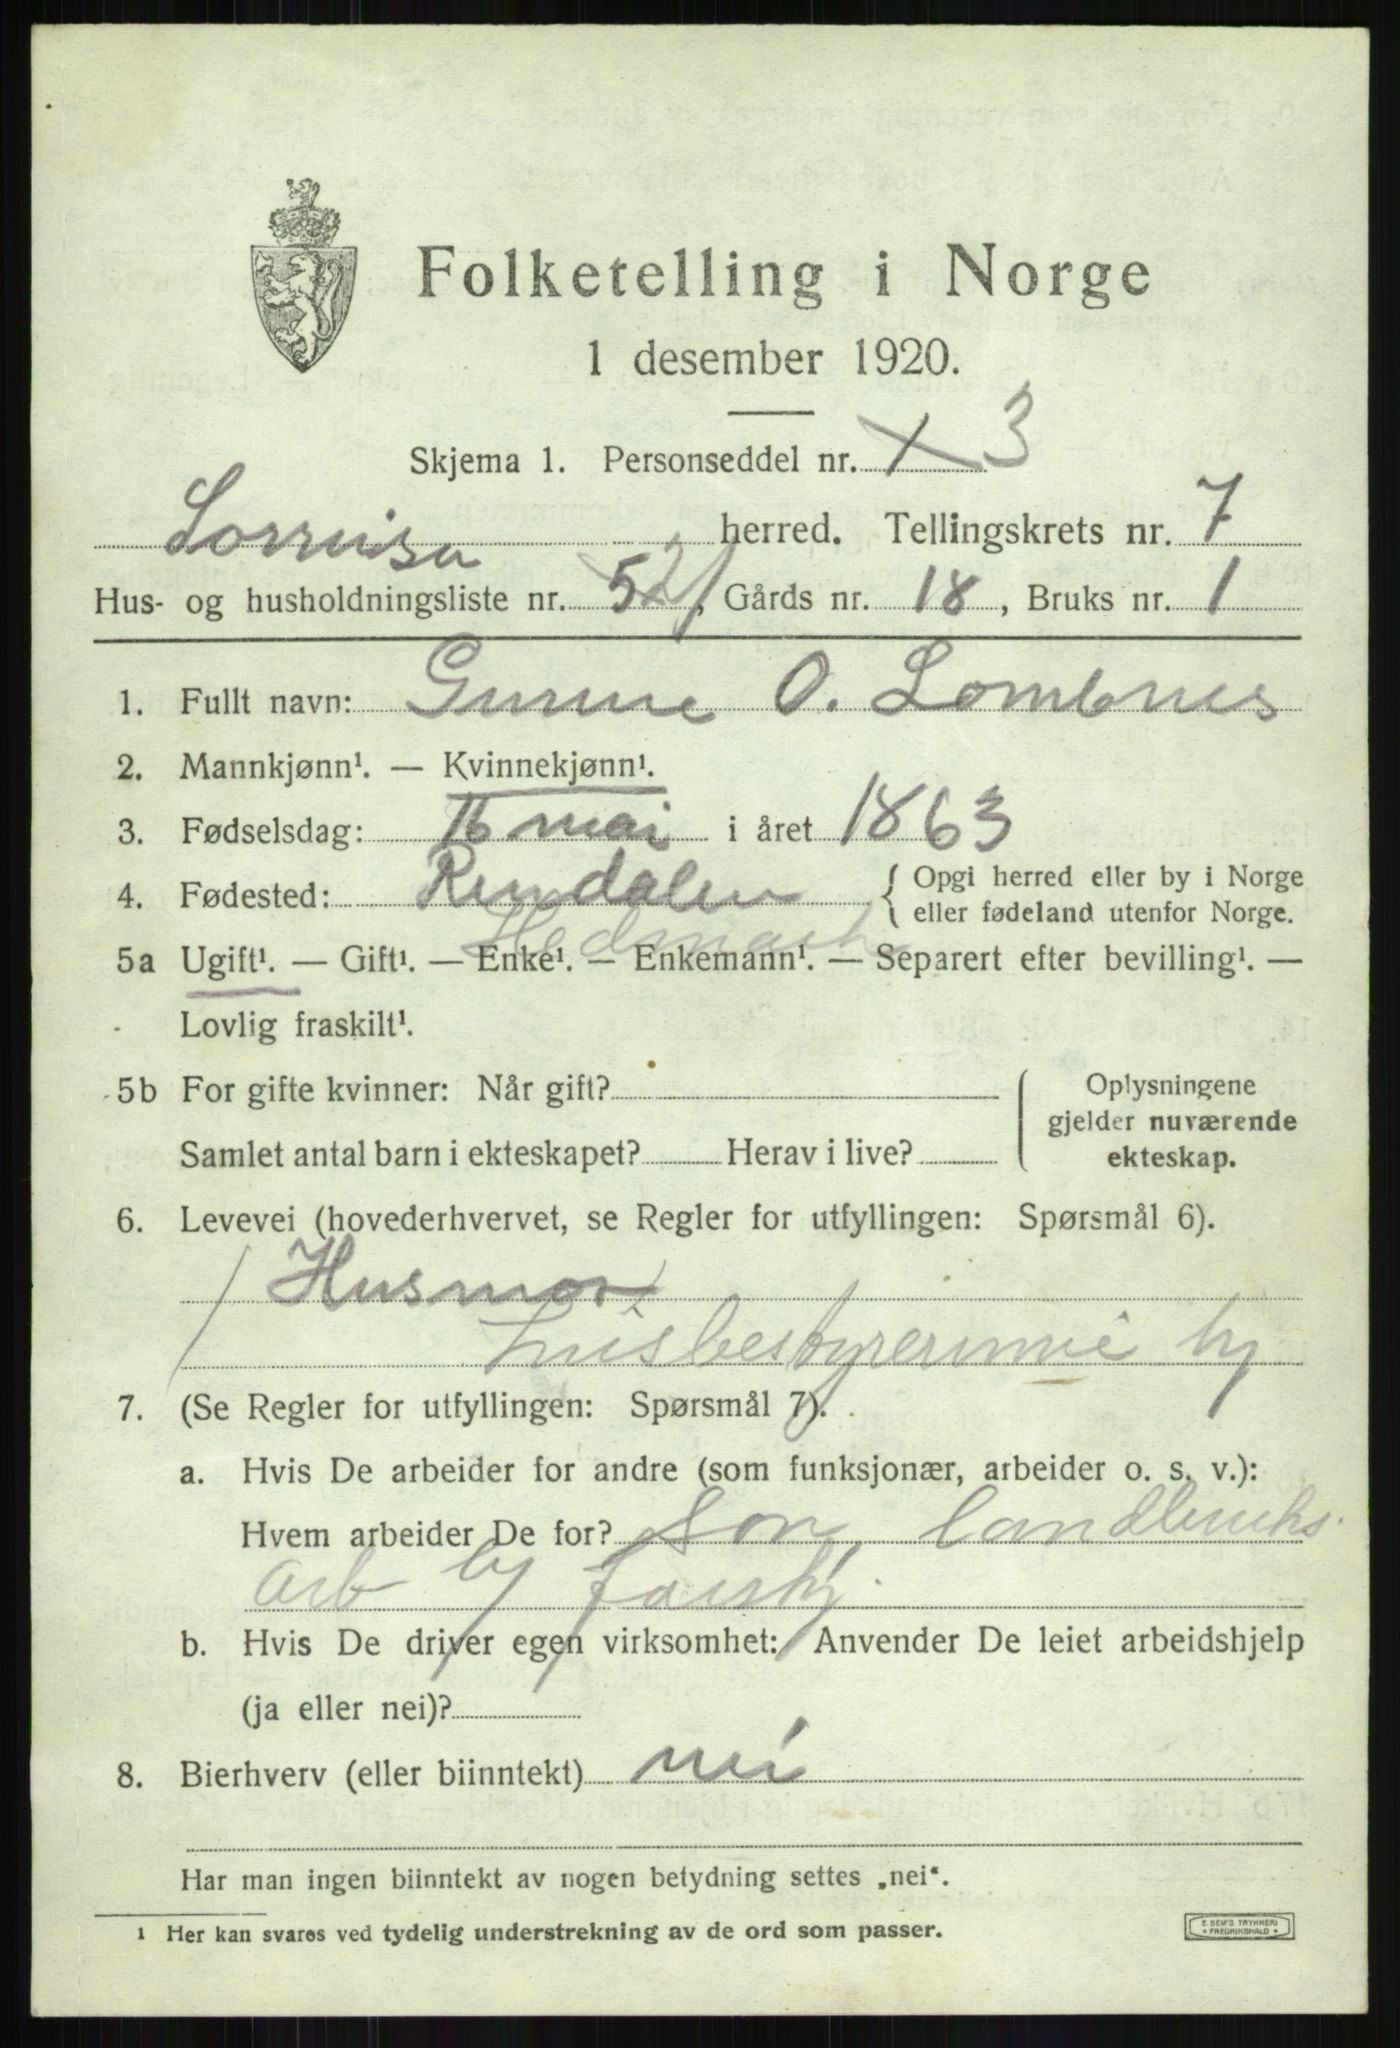 Folketelling i Norge
1 desember 1920.
Skjema 1. Personseddel nr. 3
Sørreisa herred. Tellingskrets nr. 7
Hus- og husholdningsliste nr. 21, Gårds nr. 18, Bruks nr. 1
1. Fullt navn: Gurine O. Lombnes
2. Mannkjønn¹. — Kvinnekjønn¹.
3. Fødselsdag: 16 mai i året 1863
4. Fødested: Rendalen { Opgi herred eller by i Norge
eller fødeland utenfor Norge.
Hedmark
5a Ugift¹. — Gift¹. — Enke¹. — Enkemann¹. — Separert efter bevilling¹. —
Lovlig fraskilt¹.
5b For gifte kvinner: Når gift? Oplysningene
gjelder nuværende
Samlet antal barn i ekteskapet? Herav i live? ekteskap.
6. Levevei (hovederhvervet, se Regler for utfyllingen: Spørsmål 6).
Husmor
husbestyrerinne hj
7. (Se Regler for utfyllingen: Spørsmål 7).
a. Hvis De arbeider for andre (som funksjonær, arbeider o. s. v.):
Hvem arbeider De for? Son, landbruks.
arb
b. Hvis De driver egen virksomhet: Anvender De leiet arbeidshjelp
(ja eller nei)?
8. Bierhverv (eller biinntekt) nei
Har man ingen biinntekt av nogen betydning settes „nei“.
¹ Her kan svares ved tydelig understrekning av de ord som passer.
E. SEM'S TRYKKERI
* FREDRIKSHALD *